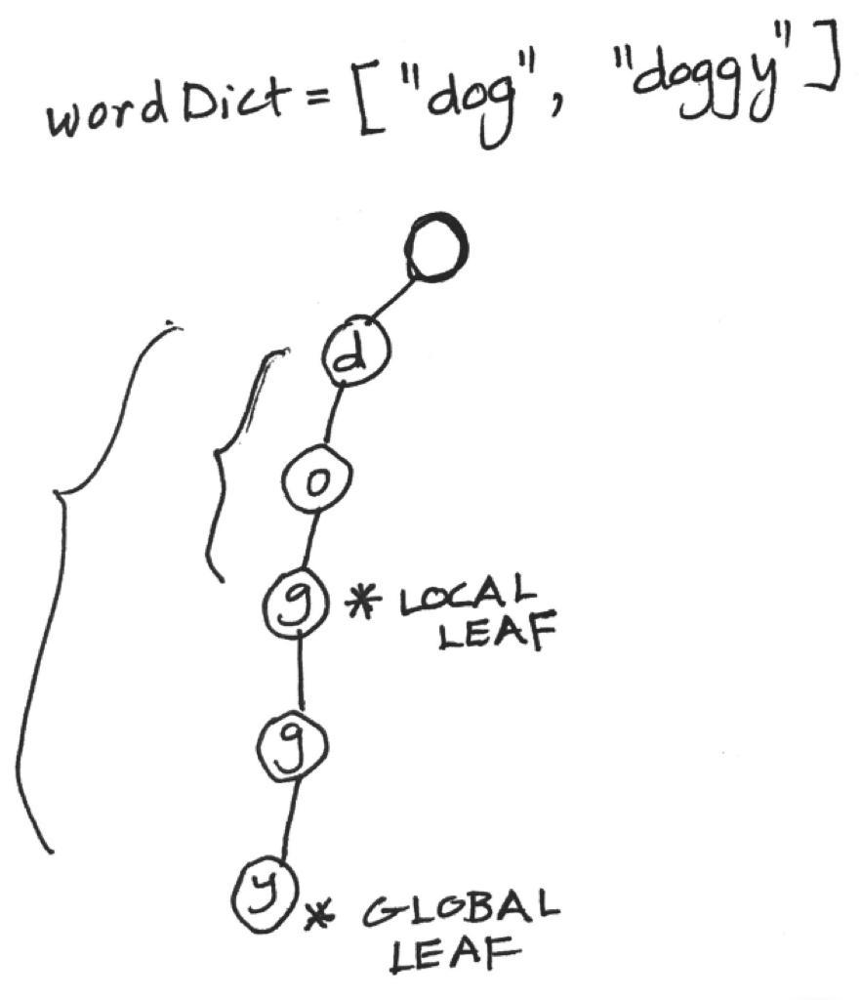 wordDict = ["dog", "doggy"]
d
o
g * LOCAL
LEAF
g
y * GLOBAL
LEAF